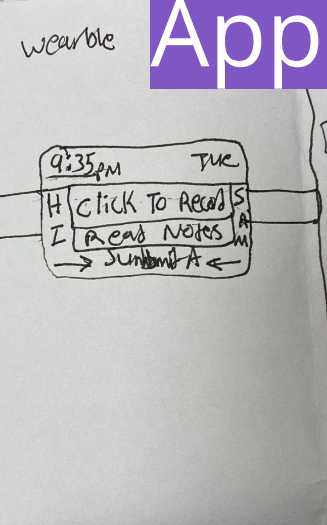 wearble
App
9:35 PM TUE
HI
Click To Record
Read Notes
SAM
A